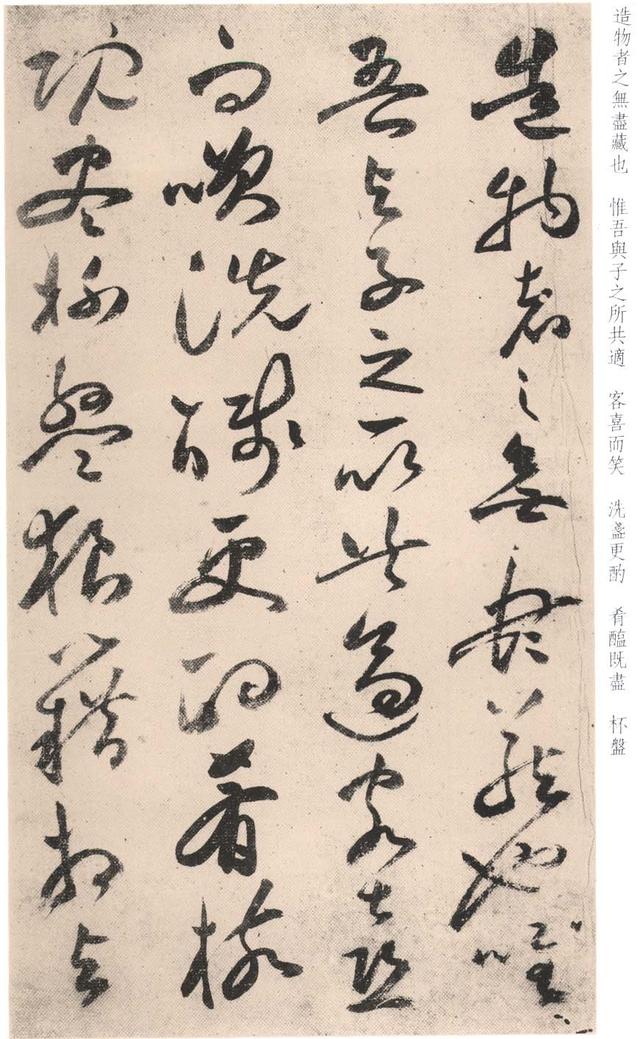 造物者之無盡藏也　惟吾與子之所共適　客喜而笑　洗盞更酌　肴醞既盡　杯盤
造物者之無盡藏也唯
吾与子之所共適客喜
而咲洗醆更酌肴核
既盡杯盤狼藉相与